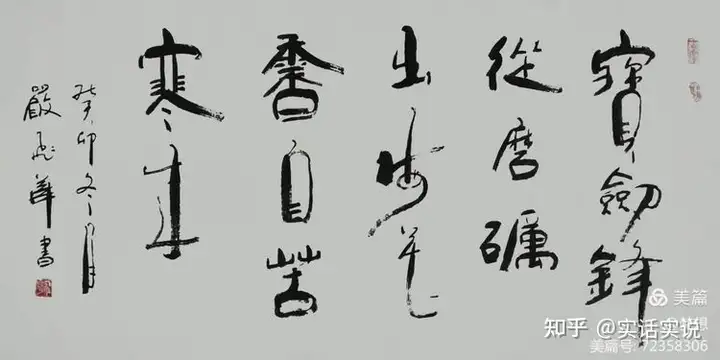 寶劍鋒
從磨礪
出梅花
香自苦
寒來
癸卯冬月
嚴飛華書
美篇
知乎 @实话实说
美篇号: 72358306